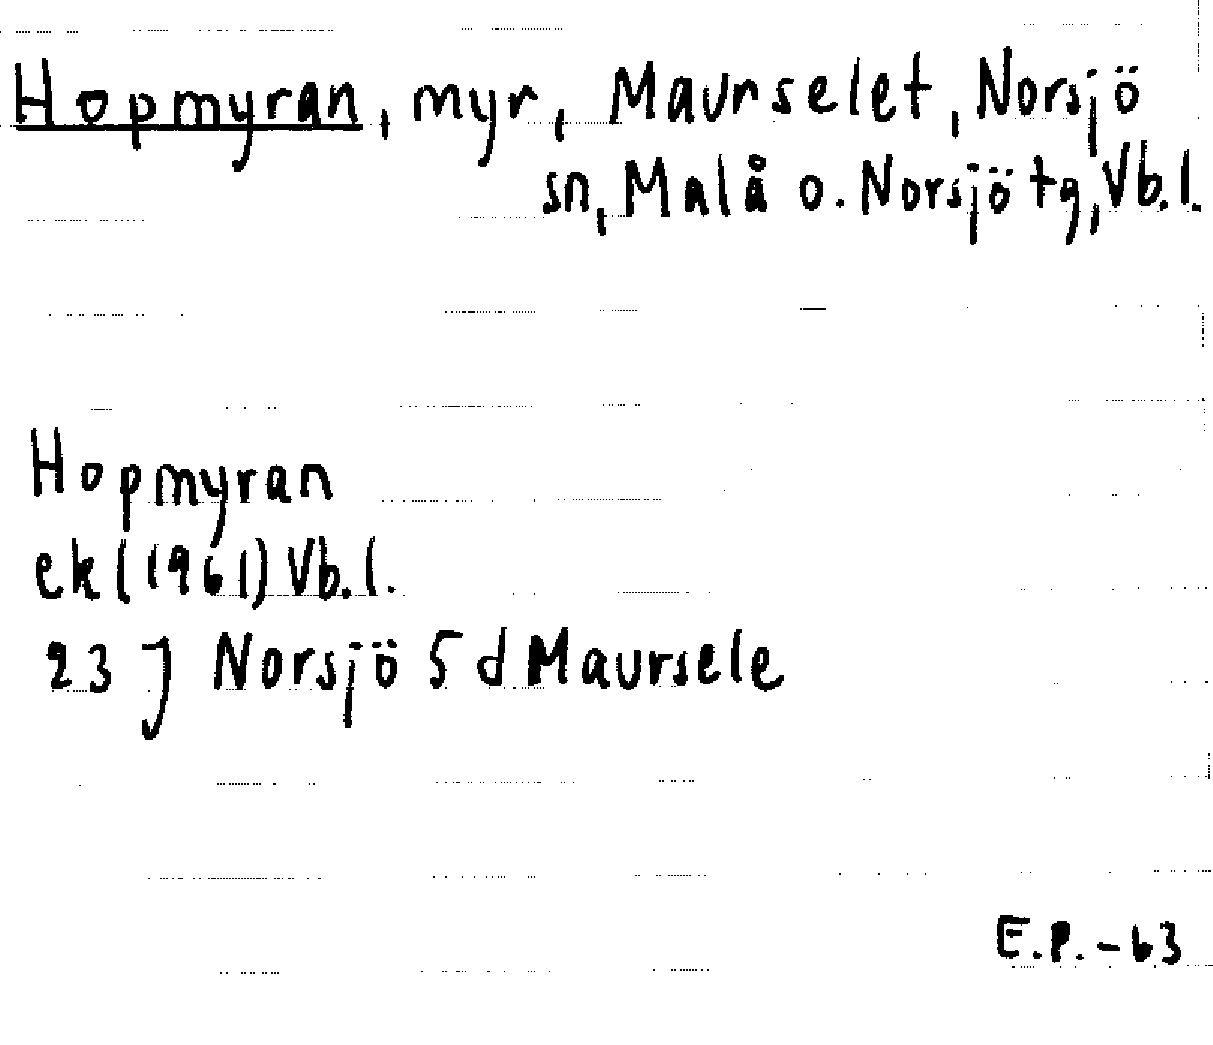 Hopmyran, myr, Maurselet, Norsjö
sn, Malå o. Norsjö tg, Vb.l.
Hopmyran
ek (1961) Vb.l.
23 J Norsjö 5 d Maursele
E.P. -63